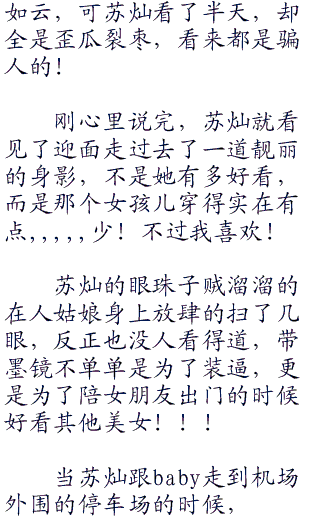 如云，可苏灿看了半天，却
全是歪瓜裂枣，看来都是骗
人的！
刚心里说完，苏灿就看
见了迎面走过去了一道靓丽
的身影，不是她有多好看，
而是那个女孩儿穿得实在有
点,,,,,少！不过我喜欢！
苏灿的眼珠子贼溜溜的
在人姑娘身上放肆的扫了几
眼，反正也没人看得道，带
墨镜不单单是为了装逼，更
是为了陪女朋友出门的时候
好看其他美女！！！
当苏灿跟baby走到机场
外围的停车场的时候，